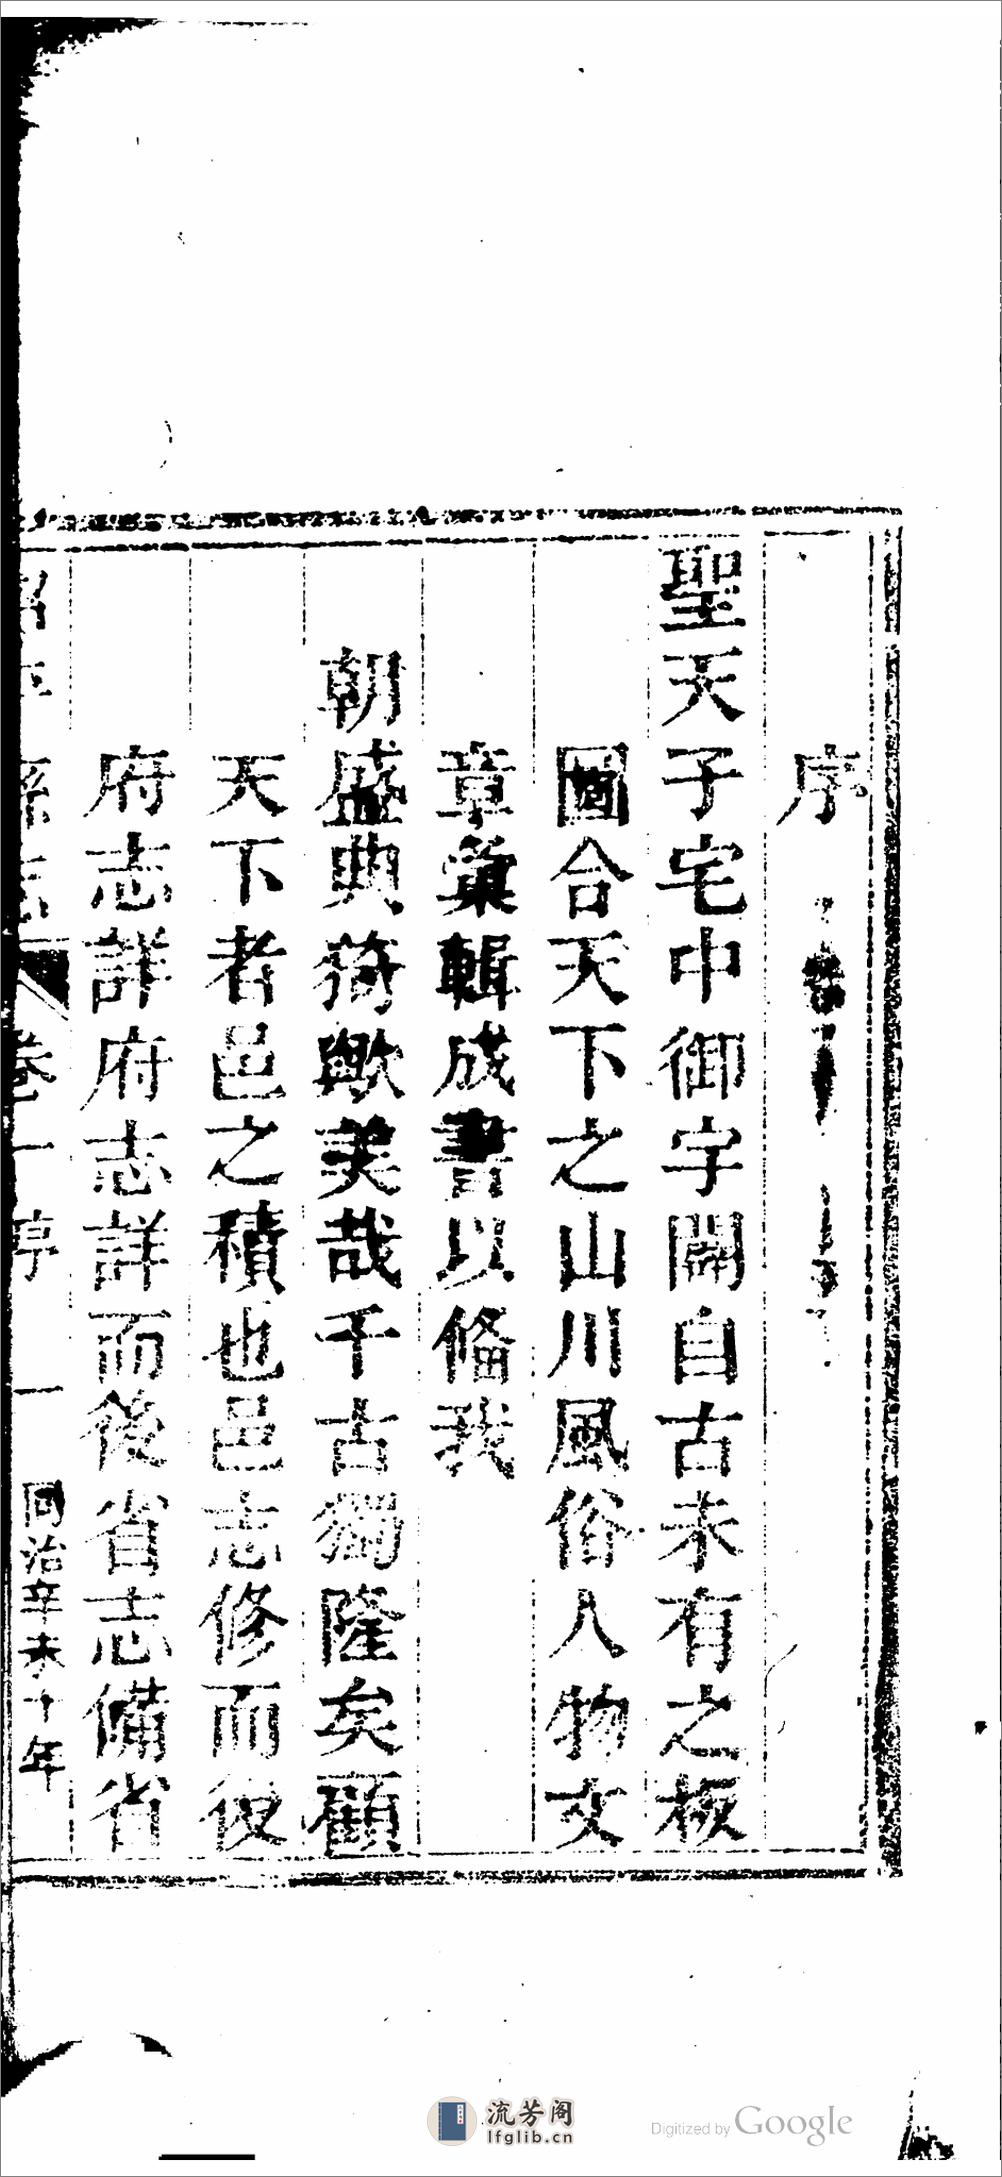 序
聖天子宅中御字開自古未有之板
圖合天下之山川風俗人物文
章彙輯成書以俻我
朝盛典猗歟美哉千古獨隆矣顧
天下者邑之積也邑志修而後
府志詳府志詳而後省志備省
卷一 序 一 同治辛未十年
流芳阁
lfglib.cn
Digitized by Google